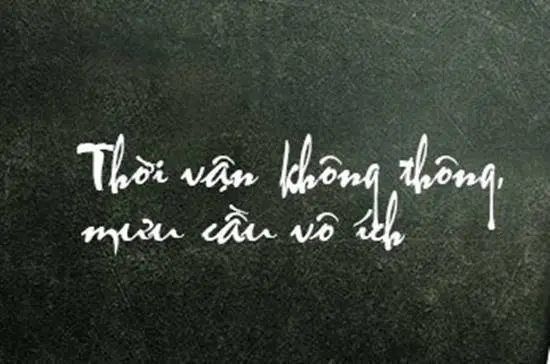 Thời vận không thông,
mưu cầu vô ích